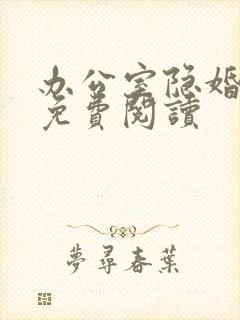 办公室隐婚
免費閱讀
夢尋春葉